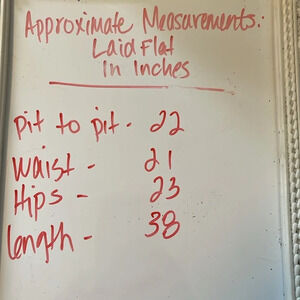 Approximate Measurements:
Laid Flat
In Inches
pit to pit - 22
waist - 21
Hips - 23
length - 38